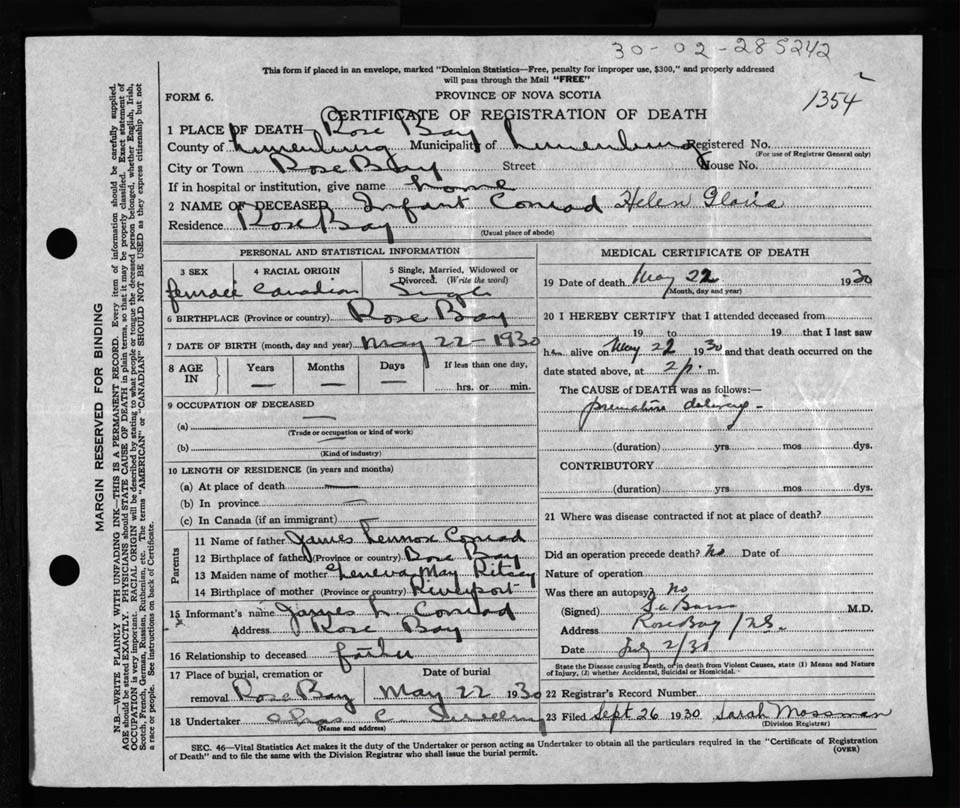 30-02-285242
This form if placed in an envelope, marked "Dominion Statistics—Free, penalty for improper use, $300," and properly addressed
will pass through the Mail "FREE"
FORM 6.
PROVINCE OF NOVA SCOTIA
1354
CERTIFICATE OF REGISTRATION OF DEATH
1 PLACE OF DEATH— Rose Bay
County of Lunenburg Municipality of Lunenburg Registered No.
(For use of Registrar General only)
City or Town Rose Bay Street House No.
If in hospital or institution, give name home
2 NAME OF DECEASED Infant Conrad Helen Gloria
Residence Rose Bay
(Usual place of abode)
PERSONAL AND STATISTICAL INFORMATION
3 SEX 4 RACIAL ORIGIN 5 Single, Married, Widowed or
Divorced. (Write the word)
female Canadian Single
6 BIRTHPLACE (Province or country) Rose Bay
7 DATE OF BIRTH (month, day and year) May 22 - 1930
8 AGE IN Years Months Days If less than one day,
— — — hrs. or min.
9 OCCUPATION OF DECEASED
(a) —
(Trade or occupation or kind of work)
(b) —
(Kind of industry)
10 LENGTH OF RESIDENCE (in years and months)
(a) At place of death —
(b) In province —
(c) In Canada (if an immigrant)
Parents
11 Name of father James Lennox Conrad
12 Birthplace of father (Province or country) Rose Bay
13 Maiden name of mother Geneva May Ritcey
14 Birthplace of mother (Province or country) Riverport
15 Informant's name James L. Conrad
Address Rose Bay
16 Relationship to deceased father
17 Place of burial, cremation or Date of burial
removal Rose Bay May 22 1930
18 Undertaker Chas C.
(Name and address)
MEDICAL CERTIFICATE OF DEATH
19 Date of death May 22 1930
(Month, day and year)
20 I HEREBY CERTIFY that I attended deceased from
19 to 19 that I last saw
h alive on May 22 1930 and that death occurred on the
date stated above, at 2 p. m.
The CAUSE of DEATH was as follows:—
premature delivery -
(duration) yrs mos dys.
CONTRIBUTORY
(duration) yrs. mos. dys.
21 Where was disease contracted if not at place of death?
Did an operation precede death? no Date of
Nature of operation
Was there an autopsy? no
(Signed) M.D.
Address Rose Bay / N.S.
Date July 2/30
State the Disease causing Death, or in death from Violent Causes, state (1) Means and Nature
of Injury, (2) whether Accidental, Suicidal or Homicidal.
22 Registrar's Record Number
23 Filed Sept 26 1930 Sarah Mossman
(Division Registrar)
SEC. 46—Vital Statistics Act makes it the duty of the Undertaker or person acting as Undertaker to obtain all the particulars required in the "Certificate of Registration
of Death" and to file the same with the Division Registrar who shall issue the burial permit.
(OVER)
MARGIN RESERVED FOR BINDING
N.B.—WRITE PLAINLY WITH UNFADING INK—THIS IS A PERMANENT RECORD. Every item of information should be carefully supplied.
AGE should be stated EXACTLY. PHYSICIANS should STATE CAUSE OF DEATH in plain terms, so that it may be properly classified. Exact statement of
OCCUPATION is very important. RACIAL ORIGIN will be described by stating to what people or tongue the deceased person belonged, whether English, Irish,
Scotch, French, German, Russian, Ruthenian, etc. The terms "AMERICAN" or "CANADIAN" SHOULD NOT BE USED as they express citizenship but not
a race or people. See instructions on back of Certificate.